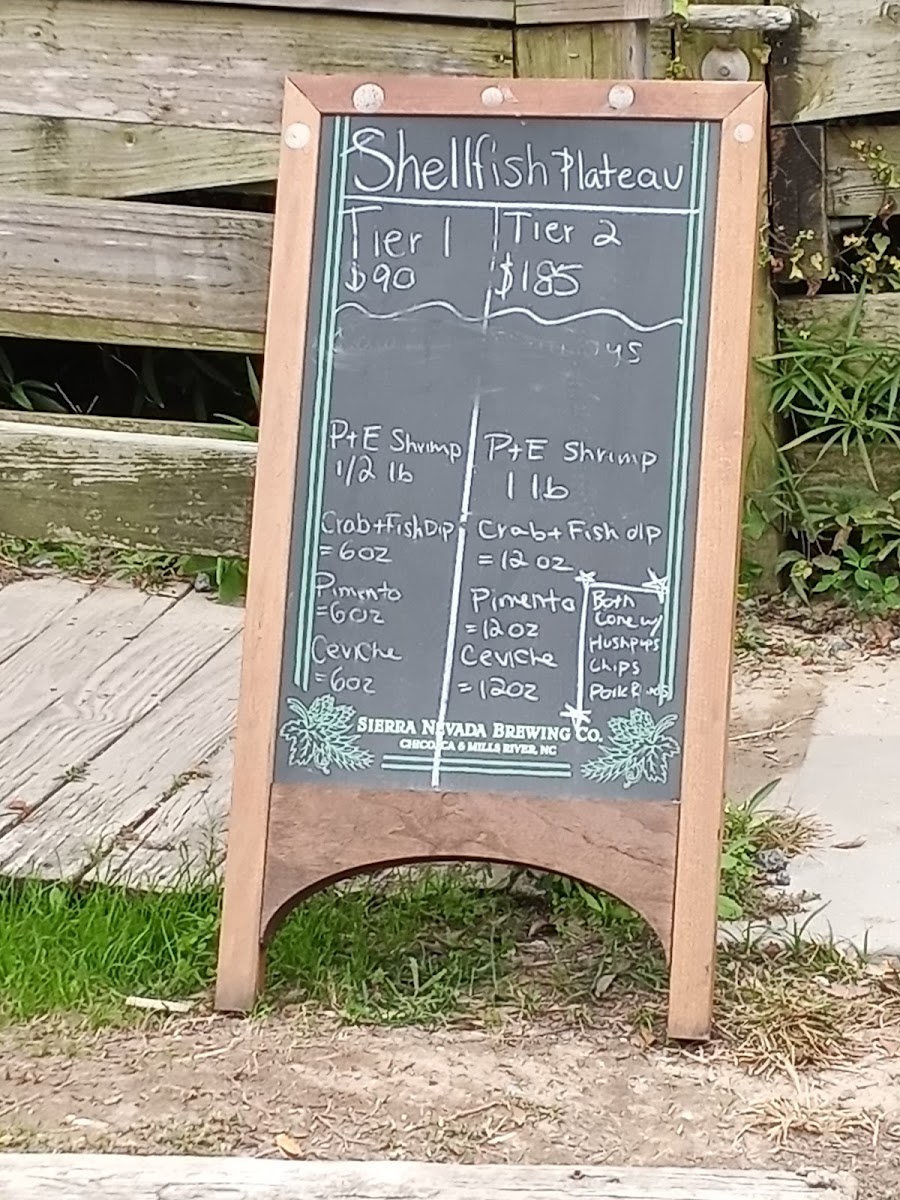 Shellfish Plateau
Tier 1
$90
Tier 2
$185
P+E Shrimp
1/2 lb
Crab+Fish Dip
= 6oz
Pimento
=6oz
Ceviche
=6oz
P+E Shrimp
1 lb
Crab+Fish dip
= 12 oz
Pimento
=12oz
Ceviche
=12oz
Both
Come w/
Hushpups
Chips
Pork
SIERRA NEVADA BREWING CO.
CHICO, CA & MILLS RIVER, NC